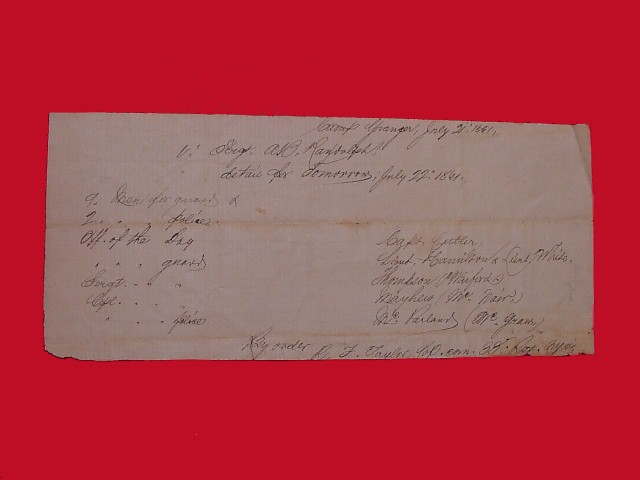 Camp Granger, July 21st 1861,
To Sergt. A.B. Randolph,
detail for Tomorrow, July 22d. 1861.
9. Men for guard &
2. " " police.
Off. of the Day Capt. Cutler,
" " " guard Lieut. Hamilton & Lieut. White.
Sergt. " " " Thompson (Warford.)
Cpl. " " " Mayhew (Mc. Nair.)
" " " police Mc. Farland (Mc. Graw)
By order R. F. Taylor Col. com. 33d. Regt.